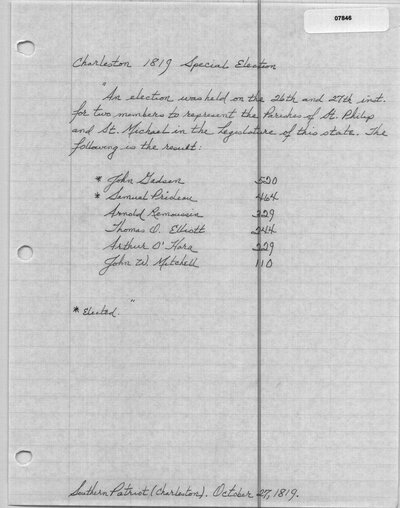 07846
Charleston 1819 Special Election
"An election was held on the 26th and 27th inst.
for two members to represent the Parishes of St. Philip
and St. Michael in the Legislature of this state. The
following is the result:
* John Gadsen 520
* Samuel Prideau 464
Arnold Remoussin 329
Thomas O. Elliott 244
Arthur O'Hara 229
John W. Mitchell 110
* Elected."
Southern Patriot (Charleston). October 27, 1819.